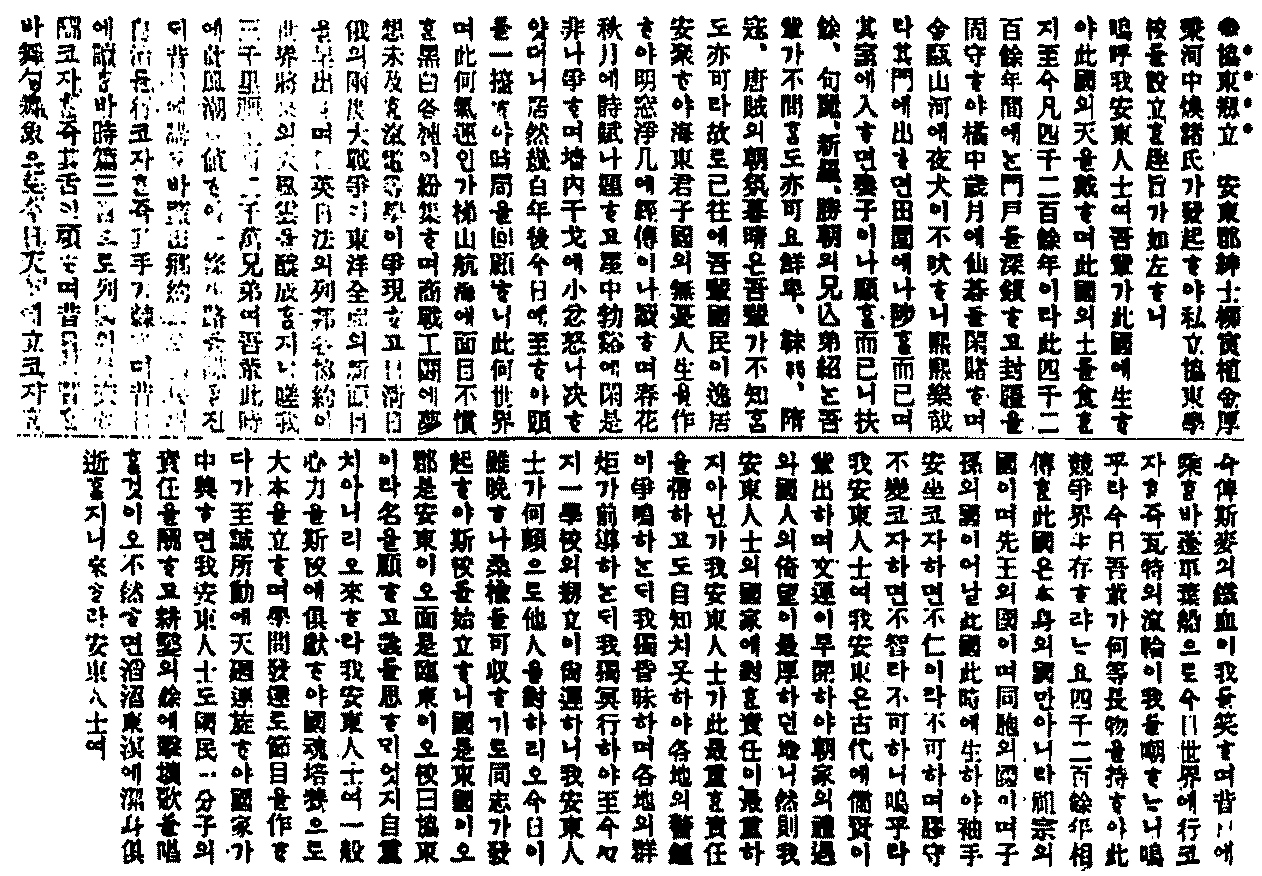 ●協東刱立　安東郡紳士柳寅植金厚
秉河中煥諸氏가發起ᄒᆞ야私立協東學
校를設立ᄒᆞᆫ趣旨가如左ᄒᆞ니
嗚呼我安東人士여吾輩가此國에生ᄒᆞ
야此國의天을戴ᄒᆞ며此國의土를食ᄒᆞᆫ
지至今凡四千二百餘年이라此四千二
百餘年間에ᄂᆞᆫ門戶를深鎖ᄒᆞ고封疆을
固守ᄒᆞ야橘中歲月에仙碁를閑賭ᄒᆞ며
金甌山河에夜犬이不吠ᄒᆞ니熙熙樂哉
라其門에出ᄒᆞ면田園에나陟ᄒᆞᆯ而已며
其室에入ᄒᆞ면妻子이나顧ᄒᆞᆯ而已니扶
餘、句麗、新羅、勝朝의兄亡弟紹ᄂᆞᆫ吾
輩가不聞ᄒᆞ도亦可요鮮卑、靺鞨、隋
寇、唐賊의朝氛暮晴은吾輩가不知ᄒᆞ
도亦可라故로已往에吾輩國民이逸居
安聚ᄒᆞ야海東君子國의無憂人生을作
ᄒᆞ야明窓淨几에經傳이나說ᄒᆞ며春花
秋月에詩賦나題ᄒᆞ고屋中勃谿에閑是
非나爭ᄒᆞ며墻內干戈에小忿怒나决ᄒᆞ
얏더니居然幾百年後今日에至ᄒᆞ야頭
를一擡ᄒᆞ야時局을回顧ᄒᆞ니此何世界
며此何氣運인가梯山航海에面目不慣
ᄒᆞᆫ黑白各種이紛集ᄒᆞ며商戰工鬪에夢
想未及ᄒᆞᆫ汽電各學이爭現ᄒᆞ고日淸日
俄의兩度大戰爭이東洋全局의新面目
을呈出ᄒᆞ며英日法의列邦各協約이
世界將來의大風雲을釀成ᄒᆞ지니嗟我
三千里疆 二千萬兄弟여吾儕此時
에此風潮 値ᄒᆞ야一條生路
디昔日에講ᄒᆞ바 鄕約
코자ᄒᆞᆫ즉 手 며昔日
에讀ᄒᆞ바時篇三百으로列
코자ᄒᆞᆫ즉其舌이頑ᄒᆞ며昔日
바舞 今日天 에立코자ᄒᆞ
今俾斯麥의鐵血이我를笑ᄒᆞ며昔日에
乘ᄒᆞ바蓬耶葉船으로今日世界에行코
자ᄒᆞᆫ즉瓦特의汽輪이我를嘲ᄒᆞᄂᆞ니嗚
乎라今日吾儕가何等長物을持ᄒᆞ야此
競爭界에存ᄒᆞ랴ᄂᆞᆫ요四千二百餘年相
傳ᄒᆞᆫ此國은本身의國만아니라祖宗의
國이며先王의國이며同胞의國이며子
孫의國이어날此國此時에生하야袖手
安坐코자하면不仁이라不可하며膠守
不變코자하면不智라不可하니嗚乎라
我安東人士여我安東은古代에儒賢이
輩出하며文運이早開하야朝家의禮遇
와國人의倚望이最厚하던地니然則我
安東人士의國家에對ᄒᆞᆫ責任이最重하
지아닌가我安東人士가此最重ᄒᆞᆫ責任
을帶하고도自知치못하야各地의警鐘
이爭鳴하ᄂᆞᆫ디我獨昏昧하며各地의群
炬가前導하ᄂᆞᆫ디我獨冥行하야至今ᄭᅥ
지一學校의刱立이尙遲하니我安東人
士가何顔으로他人을對하리오今日이
雖晚ᄒᆞ나桑楡를可收ᄒᆞ기로同志가發
起ᄒᆞ야斯校를始立ᄒᆞ니國是東國이오
郡是安東이오面是臨東이오校曰協東
이라名을顧ᄒᆞ고義를思ᄒᆞ미엇지自重
치아니리오來ᄒᆞ라我安東人士여一般
心力을斯校에俱獻ᄒᆞ야國魂培養으로
大本을立ᄒᆞ며學問發達로節目을作ᄒᆞ
다가至誠所動에天廻運旋ᄒᆞ야國家가
中興ᄒᆞ면我安東人士도國民一分子의
責任을酬ᄒᆞ고耕鑿의餘에擊壤歌를唱
ᄒᆞᆯ것이오不然ᄒᆞ면滔滔東溟에深北俱
逝ᄒᆞᆯ지니來ᄒᆞ라安東人士여